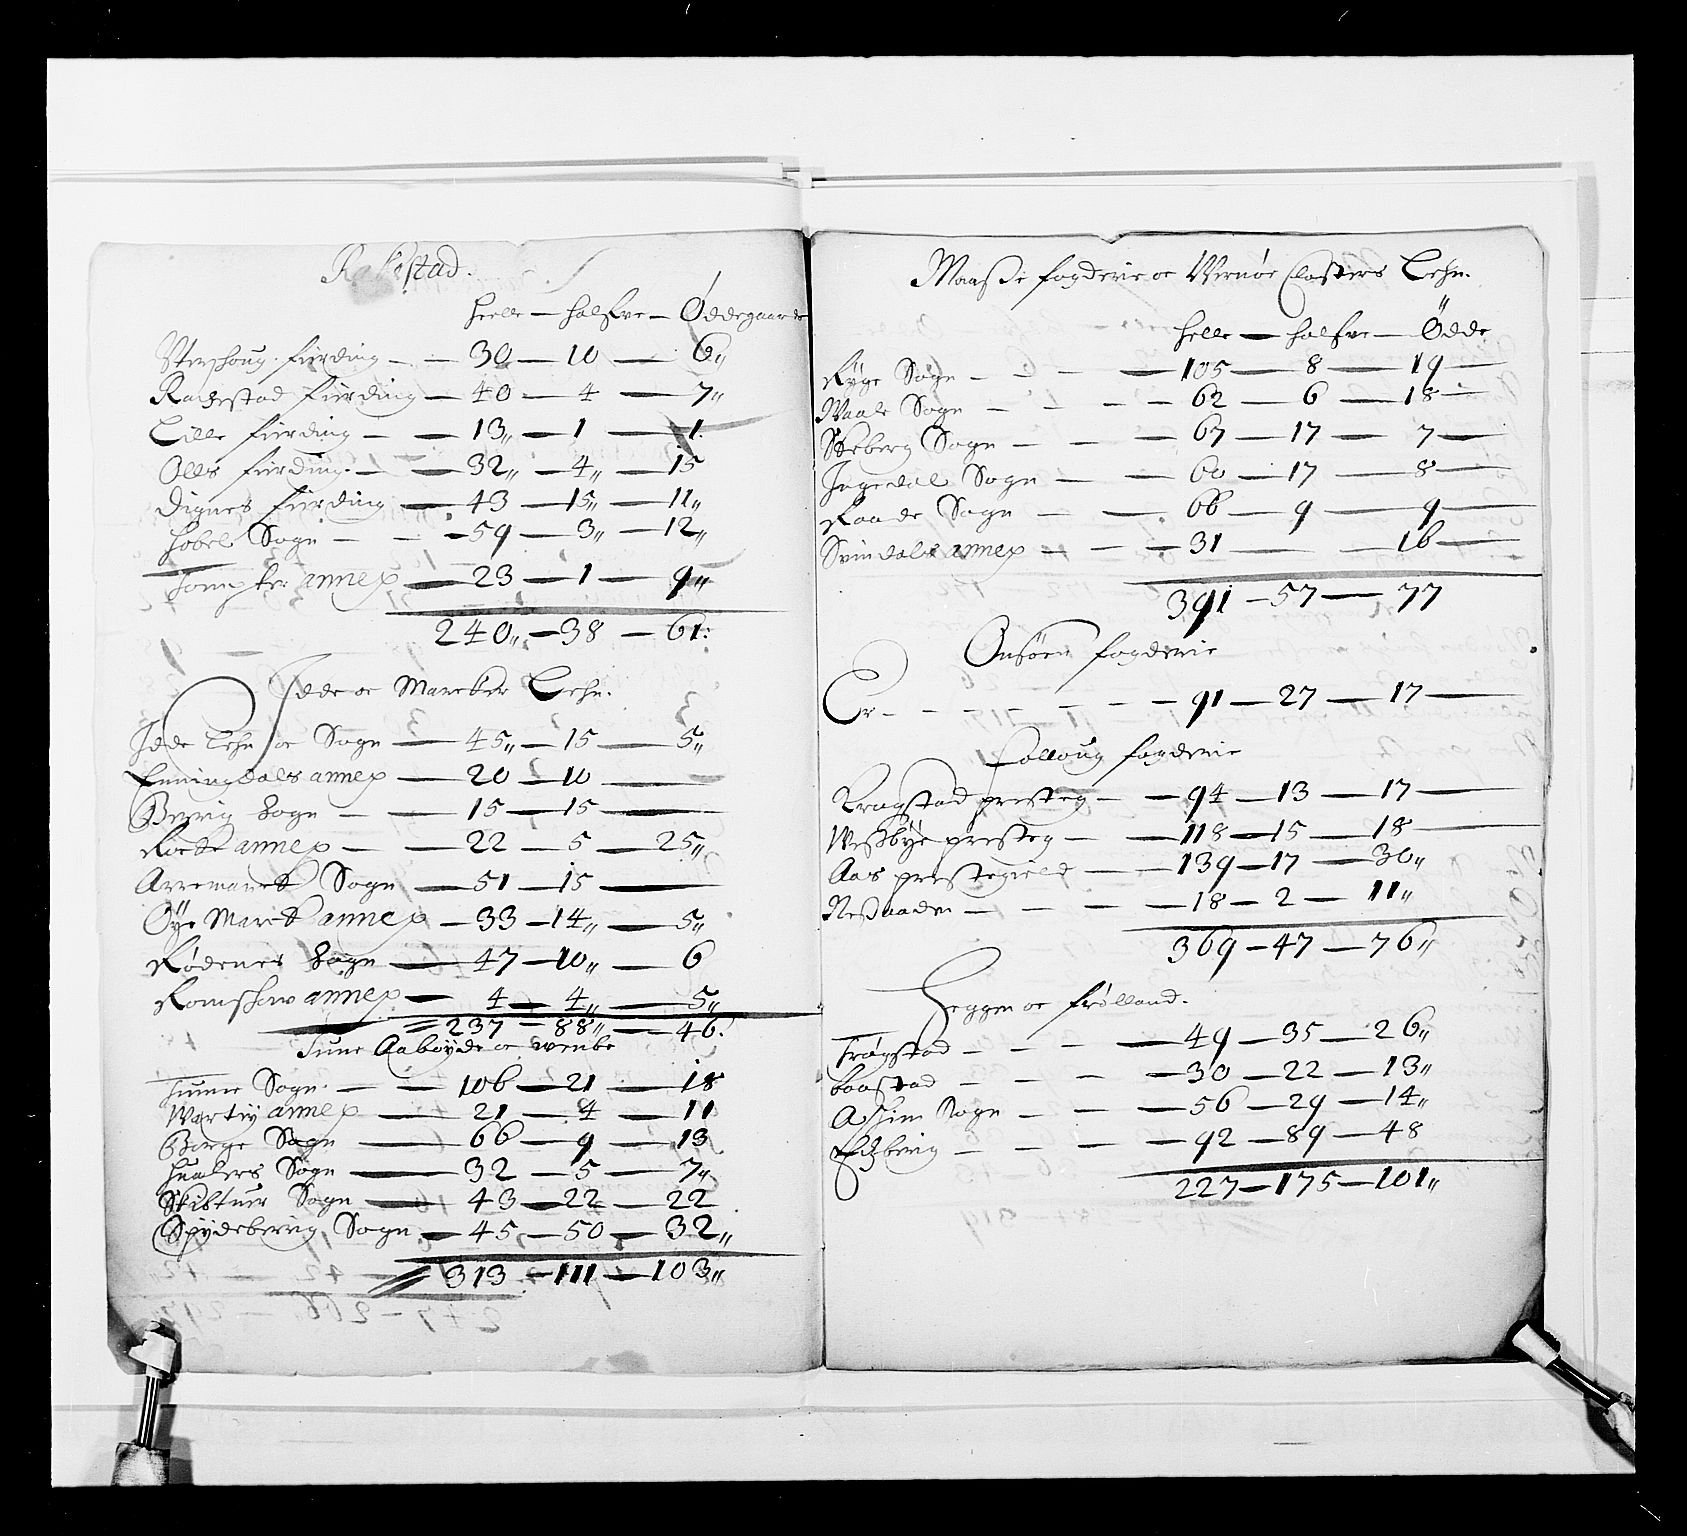 Rakestad.
helle — halfve — Øddegaarde
Stershoug fierding — 30 — 10 — 6„
Rachestad fierding — 40 — 4 — 7„
Lille fierding — 13„ — 1 — 1.
Olls fierding — 32„ — 4„ — 15
Dignes fierding — 43 — 15„ — 11„
Hobel Sogn — 59 — 3„ — 12„
annex — 23 — 1 — 9„
240„ — 38 — 61:
Idde oc Marcker Lehn.
Idde Lehn oc Sogn — 45„ — 15 — 5„
Enningdals annex — 20 — 10 —
Berrig Sogn — 15 — 15 —
Rocke annex — 22 — 5 — 25„
Arremarck Sogn — 51 — 15 —
Øye Marck annex — 33 — 14„ — 5„
Rødenes Sogn — 47 — 10„ — 6
Romschow annex — 4 — 4„ — 5„
237 — 88„ — 46.
Tune Aabøyde oc
Tune Sogn — 106 — 21 — 18
Warteig annex — 21 — 4 — 11
Borge Sogn — 66 — 9 — 13
Hualers Sogn — 32 — 5 — 7„
Skibtuet Sogn — 43 — 22 — 22
Spydeberrig Sogn — 45 — 50 — 32„
313 — 111 — 103„
Maasse fogderie oc Wernøe Closters Lehn.
helle — halfve — Ödde
Ryge Sogn — 105 — 8 — 19
Waale Sogn — 62 — 6 — 18
Skeberg Sogn — 67 — 17 — 7
Ingedal Sogn — 60 — 17 — 8
Raade Sogn — 66 — 9 — 9
Svindals annex — 31 — 16
391 — 57 — 77
Onsøen fogderie
Er — 91 — 27 — 17
Folloug fogderie
Kragstad presteg — 94 — 13 — 17
Wessbye presteg — 118 — 15 — 18
Aas prestegield — 139 — 17 — 30„
Nessodden — 18 — 2 — 11„
369 — 47 — 76„
Heggen oc Frølland.
Trøgstad — 49 — 35 — 26„
Baastad — 30 — 22 — 13„
Aschim Sogn — 56 — 29 — 14„
Edzberig — 92 — 89 — 48
227 — 175 — 101„